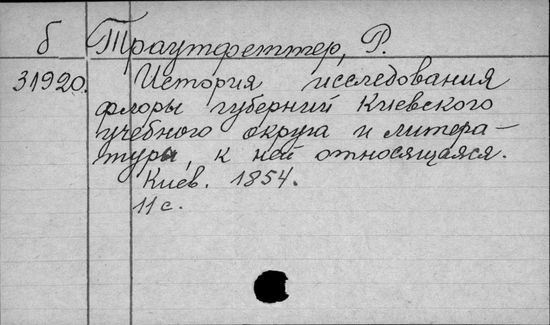 б Траутфеттер, Р.
31920. История исследования
флоры губерний Киевского
учебного округа и литера-
туры, к ней относящаяся.
Киев. 1854.
11 с.